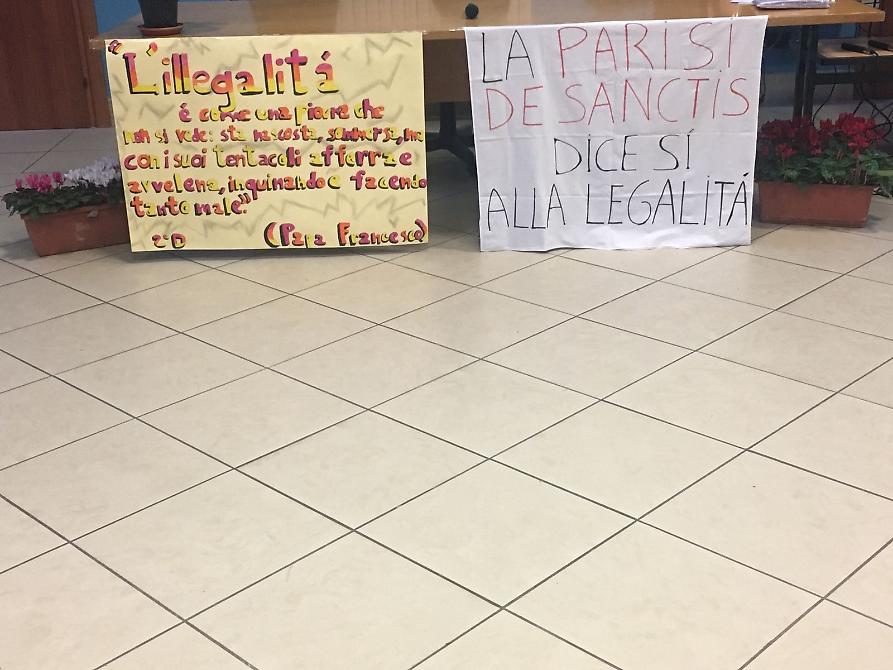 "L'illegalitá
é come una piovra che
non si vede: sta nascosta, sommersa, ma
con i suoi tentacoli afferra e
avvelena, inquinando e facendo
tanto male."
2°D (Papa Francesco)
LA PARISI
DE SANCTIS
DICE SÍ
ALLA LEGALITÁ